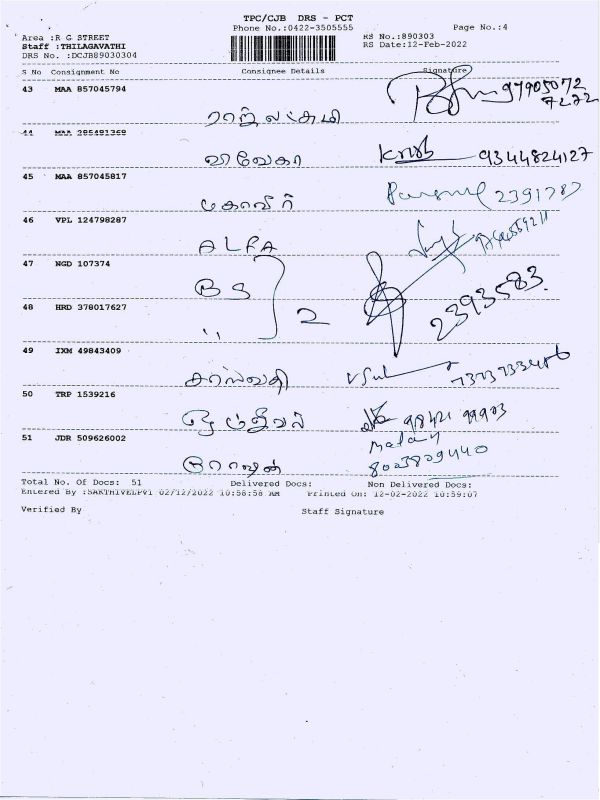 TPC/CJB DRS - PCT
Phone No.:0422-3505555 Page No.:4
Area :R G STREET RS No.:890303
Staff :THILAGAVATHI RS Date:12-Feb-2022
DRS No. :DCJB89030304
S No Consignment No Consignee Details Signature
43 MAA 857045794
ராஜலட்சுமி
7272
44 MAA 285491369
விவேகா 9344824127
45 MAA 857045817
மகாவீர் 2391787
46 VPL 124798287
ALFA
47 NGD 107374
BS
2 2393583
48 HRD 378017627
"
49 IXM 49843409
சரஸ்வதி
50 TRP 1539216
98421 99903
51 JDR 509626002
Total No. Of Docs: 51 Delivered Docs: Non Delivered Docs:
Entered By :SAKTHIVELPV1 02/12/2022 10:58:58 AM Printed On: 12-02-2022 10:59:07
Verified By Staff Signature